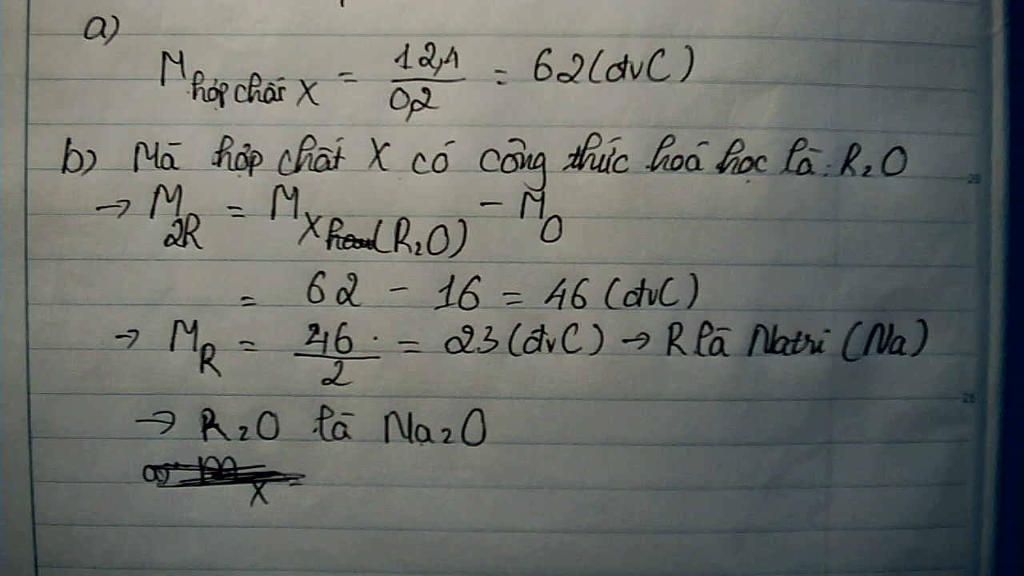 a)
M hợp chất X = 12,4/0,2 = 62 (đvC)
b) Mà hợp chất X có công thức hoá học là: R₂O
→ M 2R = M X (R₂O) - M O
= 62 - 16 = 46 (đvC)
→ M R = 46/2 = 23 (đvC) → R là Natri (Na)
→ R₂O là Na₂O